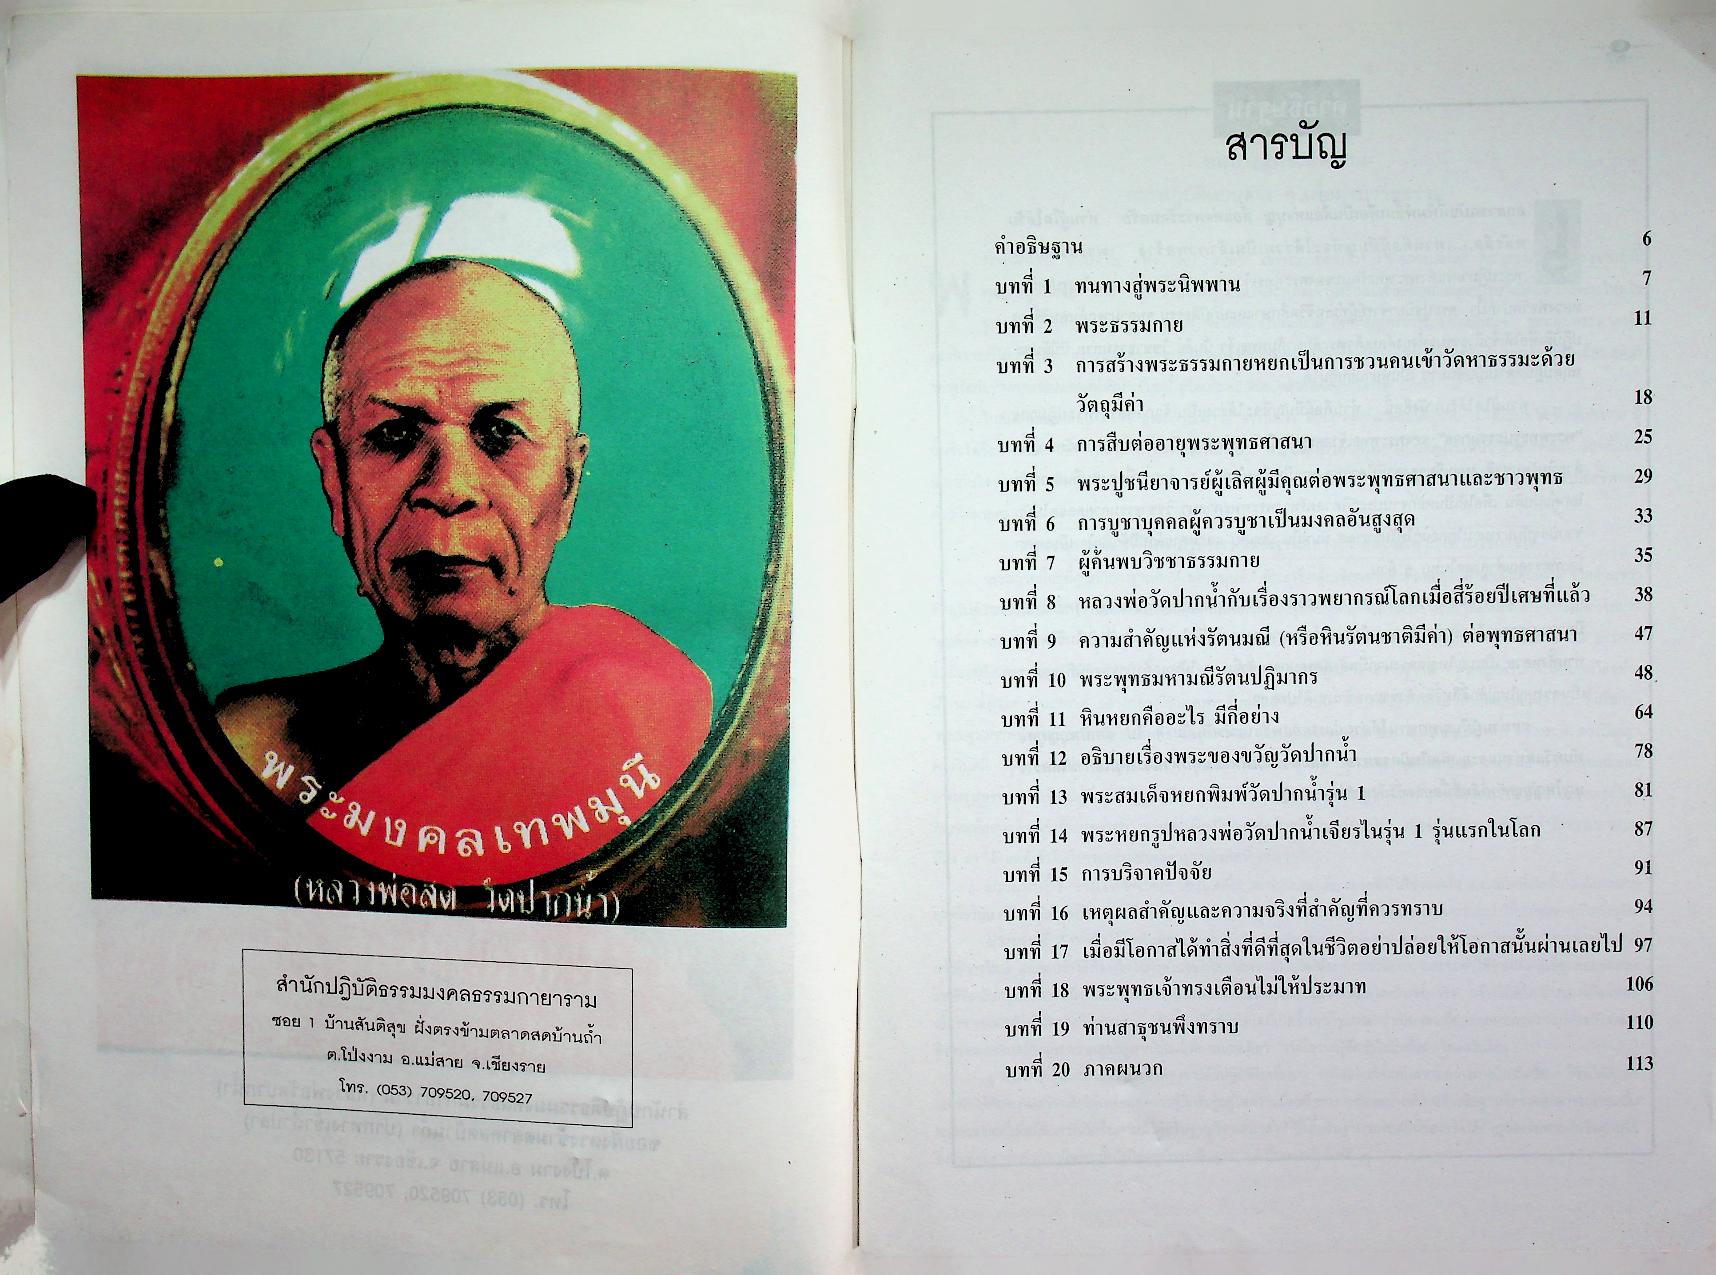 พระมงคลเทพมุนี
(หลวงพ่อสด วัดปากน้ำ)
สำนักปฏิบัติธรรมมงคลธรรมกายาราม
ซอย 1 บ้านสันติสุข ฝั่งตรงข้ามตลาดสดบ้านถ้ำ
ต.โป่งงาม อ.แม่สาย จ.เชียงราย
โทร. (053) 709520, 709527
สารบัญ
คำอธิษฐาน 6
บทที่ 1 ทนทางสู่พระนิพพาน 7
บทที่ 2 พระธรรมกาย 11
บทที่ 3 การสร้างพระธรรมกายหยกเป็นการชวนคนเข้าวัดหาธรรมะด้วย
วัตถุมีค่า 18
บทที่ 4 การสืบต่ออายุพระพุทธศาสนา 25
บทที่ 5 พระปูชนียาจารย์ผู้เลิศผู้มีคุณต่อพระพุทธศาสนาและชาวพุทธ 29
บทที่ 6 การบูชาบุคคลผู้ควรบูชาเป็นมงคลอันสูงสุด 33
บทที่ 7 ผู้ค้นพบวิชชาธรรมกาย 35
บทที่ 8 หลวงพ่อวัดปากน้ำกับเรื่องราวพยากรณ์โลกเมื่อสี่ร้อยปีเศษที่แล้ว 38
บทที่ 9 ความสำคัญแห่งรัตนมณี (หรือหินรัตนชาติมีค่า) ต่อพุทธศาสนา 47
บทที่ 10 พระพุทธมหามณีรัตนปฏิมากร 48
บทที่ 11 หินหยกคืออะไร มีกี่อย่าง 64
บทที่ 12 อธิบายเรื่องพระของขวัญวัดปากน้ำ 78
บทที่ 13 พระสมเด็จหยกพิมพ์วัดปากน้ำรุ่น 1 81
บทที่ 14 พระหยกรูปหลวงพ่อวัดปากน้ำเจียรไนรุ่น 1 รุ่นแรกในโลก 87
บทที่ 15 การบริจาคปัจจัย 91
บทที่ 16 เหตุผลสำคัญและความจริงที่สำคัญที่ควรทราบ 94
บทที่ 17 เมื่อมีโอกาสได้ทำสิ่งที่ดีที่สุดในชีวิตอย่าปล่อยให้โอกาสนั้นผ่านเลยไป 97
บทที่ 18 พระพุทธเจ้าทรงเตือนไม่ให้ประมาท 106
บทที่ 19 ท่านสาธุชนพึงทราบ 110
บทที่ 20 ภาคผนวก 113